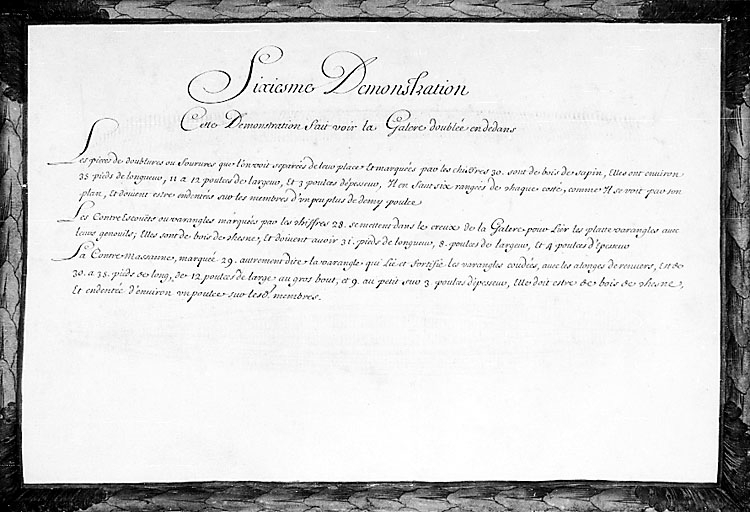 Sixiesme Demonstration
Cette Demonstration fait voir la Galere doublée en dedans
Les pieces de doublures ou fourures que l'on voit separées de leur place et marquées par les chiffres 30. sont de bois de sapin, Elles ont environ
35 pieds de longueur, 11 a 12 poulces de largeur, et 3 poulces d'épesseur, Il en faut six rangées de chaque costé, comme Il se voit par son
plan, et doivent estre endentées sur les membres d'un peu plus de demy poulce
Les Contre Escoües ou varangles marquées par les chiffres 28. se mettent dans le creux de la Galere pour Lier les platte varangles avec
leurs genouils; Elles sont de bois de chesne, et doivent avoir 31. pieds de longueur, 8. poulces de largeur, et 4 poulces d'épesseur
La Contre Massanne, marquée 29. autrement dite la varangle qui Lie et fortifie les varangles coudées, avec les alonges de reuers, Est de
30. a 35. pieds de long, de 12 poulces de large au gros bout, et 9. au petit sur 3. poulces d'épesseur, Elle doit estre de bois de chesne,
Et endentée d'environ un poulce sur lesd. membres.